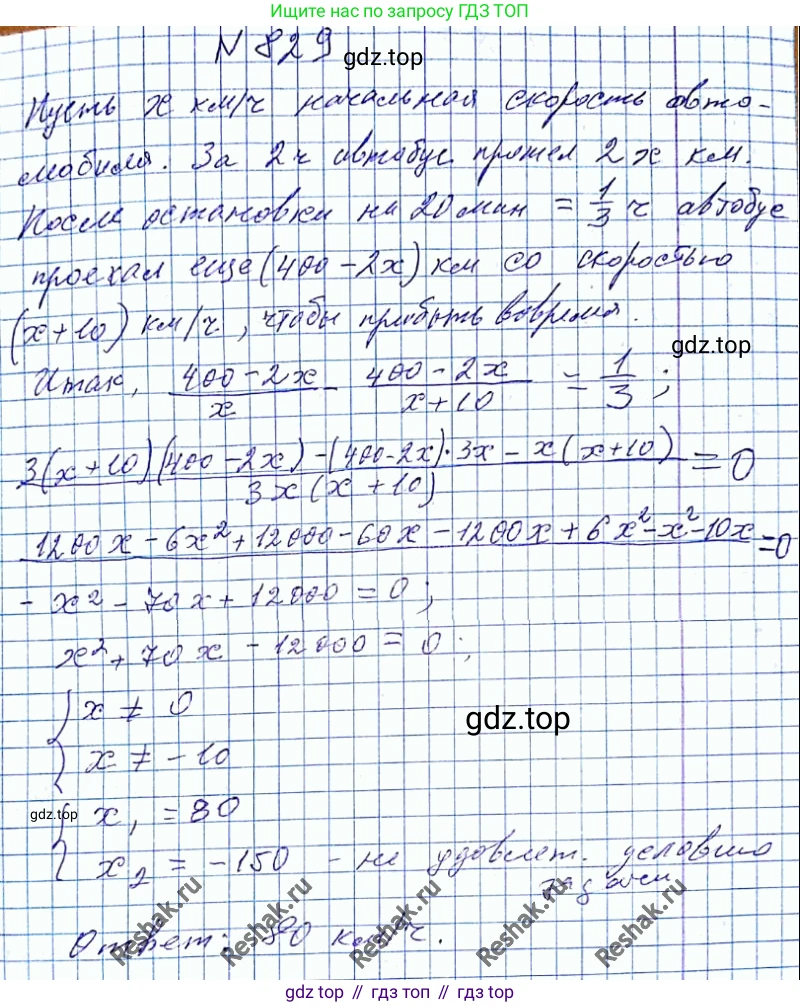 Ищите нас по запросу ГДЗ ТОП
N 829
gdz.top
Пусть x км/ч начальная скорость авто-
мобиля. За 2ч автобус прошел 2x км.
После остановки на 20 мин = 1/3 ч автобус
проехал еще (400-2x) км со скоростью
(x+10) км/ч, чтобы прибыть вовремя.
gdz.top
Итак, (400-2x)/x - (400-2x)/(x+10) = 1/3;
(3(x+10)(400-2x)-(400-2x)·3x-x(x+10))/(3x(x+10)) = 0
1200x-6x²+12000-60x-1200x+6x²-x²-10x=0
-x²-70x+12000=0;
x²+70x-12000=0;
x≠0
gdz.top
x≠-10
gdz.top
x₁=80
x₂=-150 - не удовлет. условию
задачи
Ответ: 80 км/ч.
Reshak.ru
Reshak.ru
Reshak.ru
Reshak.ru
Reshak.ru
gdz.top // гдз топ // gdz.top